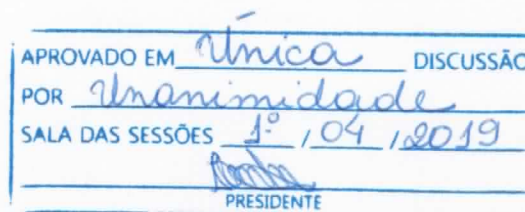 APROVADO EM Única DISCUSSÃO
POR Unanimidade
SALA DAS SESSÕES 1º / 04 / 2019
PRESIDENTE